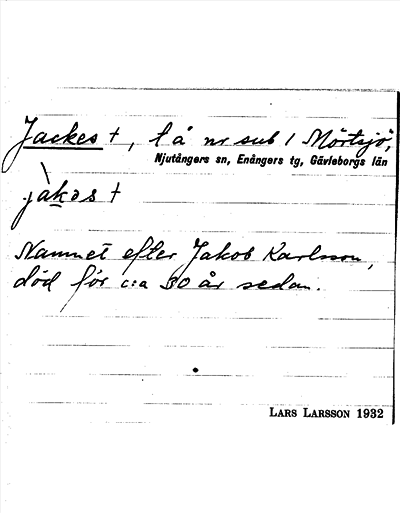 Jackes †, l å nr sub 1 Mörtsjö,
Njutångers sn, Enångers tg, Gävleborgs län
jàkəs †
Namnet efter Jakob Karlsson,
död för c:a 30 år sedan.
LARS LARSSON 1932